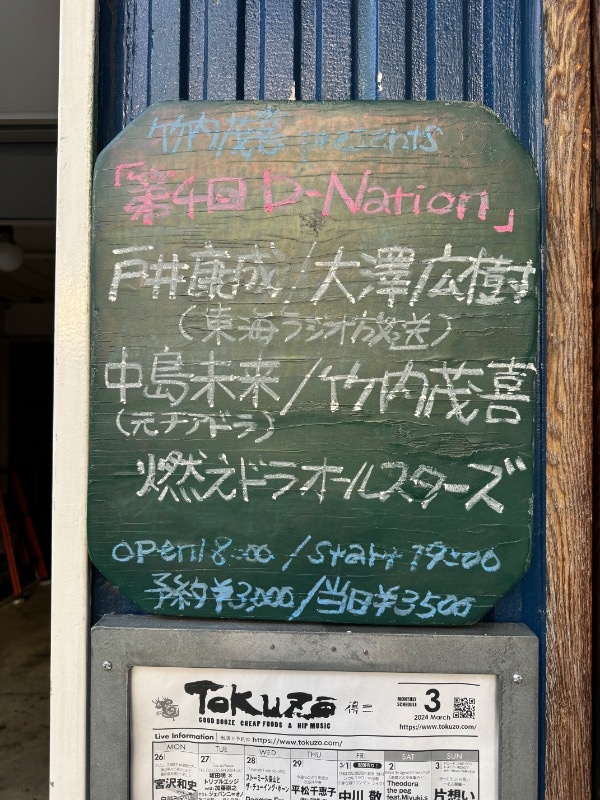 竹内茂喜 presents
「第4回 D-Nation」
戸井康成/大澤広樹
(東海ラジオ放送)
中島未来/竹内茂喜
(元チアドラ)
燃えドラオールスターズ
open18:00/Start19:00
予約¥3,000/当日¥3500
Tokuzo 得三
GOOD BOOZE CHEAP FOODS & HIP MUSIC
MONTHLY SCHEDULE 3
2024 March
https://www.tokuzo.com/
Live Information https://www.tokuzo.com/
MON TUE WED THU FRI SAT SUN
26 27 28 29 3/1 2 3
宮沢和史
平松千恵子
中川 敬
Theodora
片想い